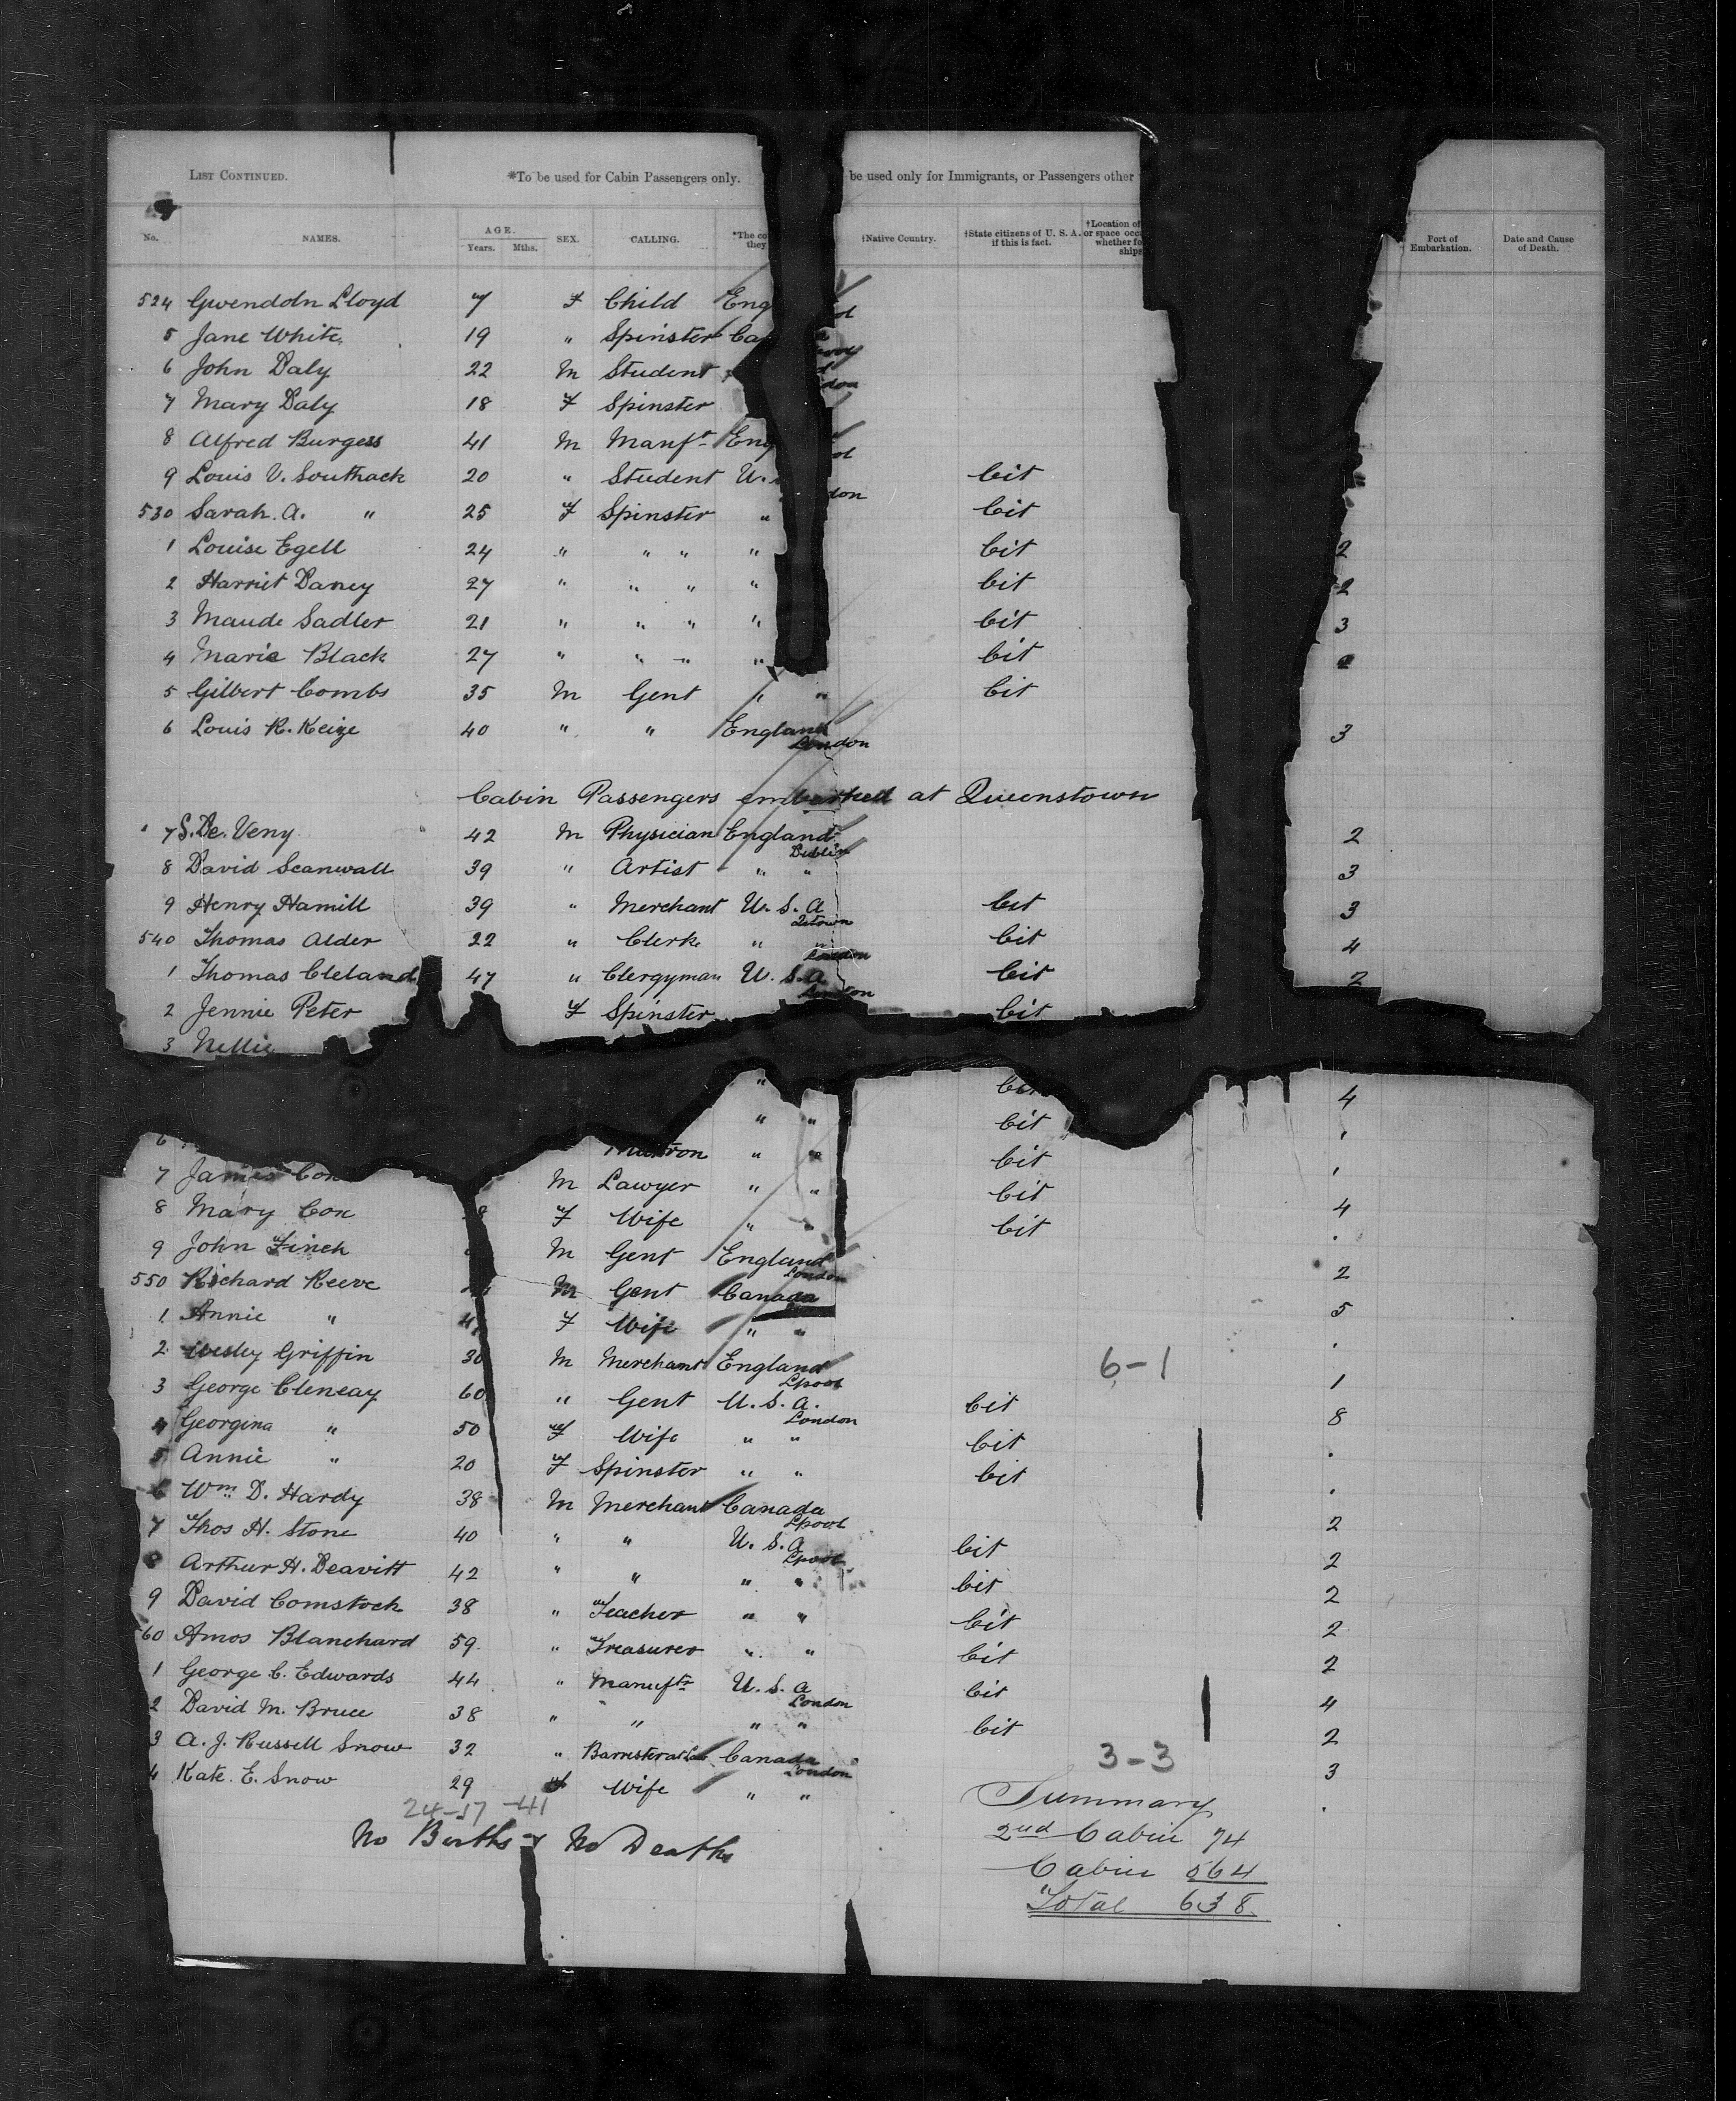 List Continued. *To be used for Cabin Passengers only. be used only for Immigrants, or Passengers other
No. NAMES. AGE. Years. Mths. SEX. CALLING. *The co they †Native Country. †State citizens of U. S. A. if this is fact. †Location of or space occ whether fo ships Port of Embarkation. Date and Cause of Death.
524 Gwendoln Lloyd 7 F Child Eng
5 Jane White 19 " Spinster Ca
6 John Daly 22 M Student
7 Mary Daly 18 F Spinster
8 Alfred Burgess 41 M Manft Eng
9 Louis V. Southack 20 " Student U. Cit
530 Sarah. A. " 25 F Spinster " Cit
1 Louise Egell 24 " " " " Cit 2
2 Harriet Daney 27 " " " " Cit 2
3 Maude Sadler 21 " " " " Cit 3
4 Marie Black 27 " " " " Cit
5 Gilbert Combs 35 M Gent " " Cit
6 Louis R. Keize 40 " " England London 3
Cabin Passengers embarked at Queenstown
7 S. De. Veny 42 M Physician England Dublin 2
8 David Scanwall 39 " Artist " " 3
9 Henry Hamill 39 " Merchant U. S. A Qstown Cit 3
540 Thomas Alder 22 " Clerk " " Cit 4
1 Thomas Cleland 47 " Clergyman U. S. A London Cit 2
2 Jennie Peter F Spinster Cit
3 Nellie
" Cit 4
" " Cit
6 " " Cit
7 James Cox M Lawyer " " Cit
8 Mary Cox F Wife " " Cit 4
9 John Finch M Gent England London
550 Richard Reeve M Gent Canada 2
1 Annie " F Wife " " 5
2 Wesley Griffin 30 M Merchant England Lpool 6-1
3 George Cleneay 60 " Gent U. S. A. London Cit 1
4 Georgina " 50 F Wife " " Cit 8
5 Annie " 20 F Spinster " " Cit
6 Wm D. Hardy 38 M Merchant Canada Lpool
7 Thos H. Stone 40 " " U. S. A Lpool Cit 2
8 Arthur H. Deavitt 42 " " " " Cit 2
9 David Comstock 38 " Teacher " " Cit 2
560 Amos Blanchard 59 " Treasurer " " Cit 2
1 George C. Edwards 44 " Manuftr U. S. A London Cit 2
2 David M. Bruce 38 " " " " Cit 4
3 A. J. Russell Snow 32 " Barrister at Law Canada London 3-3 2
4 Kate. E. Snow 29 F Wife " " 3
24-17-41
No Births & No Deaths
Summary
2nd Cabin 74
Cabin 564
Total 638